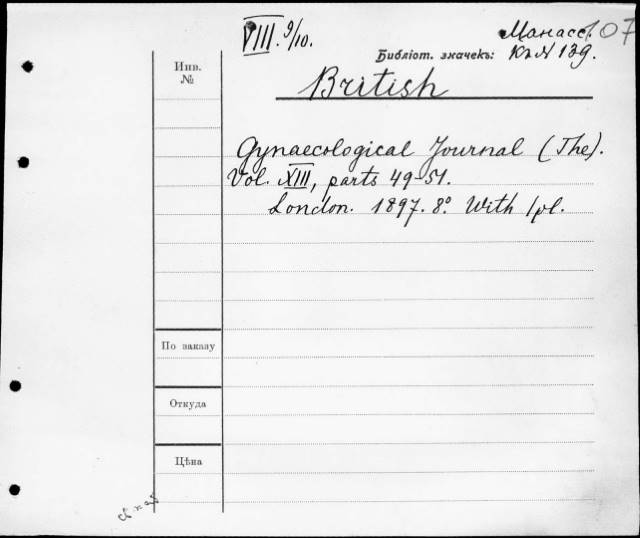 VIII. 9/10.
Манасс. 107
Библіот. значекъ: Къ № 139.
Инв.
№
British
Gynaecological Journal (The).
Vol. XIII, parts 49-51.
London. 1897. 8º. With 1 pl.
По заказу
Откуда
Цѣна